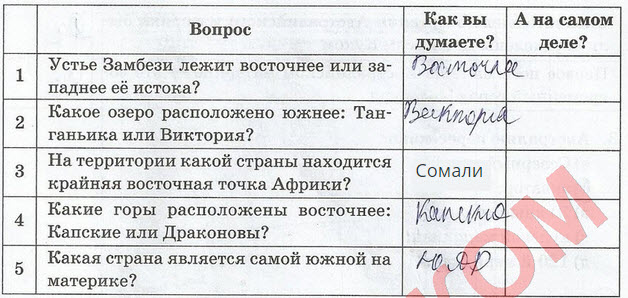 Вопрос
Как вы думаете?
А на самом деле?
1
Устье Замбези лежит восточнее или за-
паднее её истока?
Восточнее
2
Какое озеро расположено южнее: Тан-
ганьика или Виктория?
Виктория
3
На территории какой страны находится
крайняя восточная точка Африки?
Сомали
4
Какие горы расположены восточнее:
Капские или Драконовы?
Капские
5
Какая страна является самой южной на
материке?
ЮАР